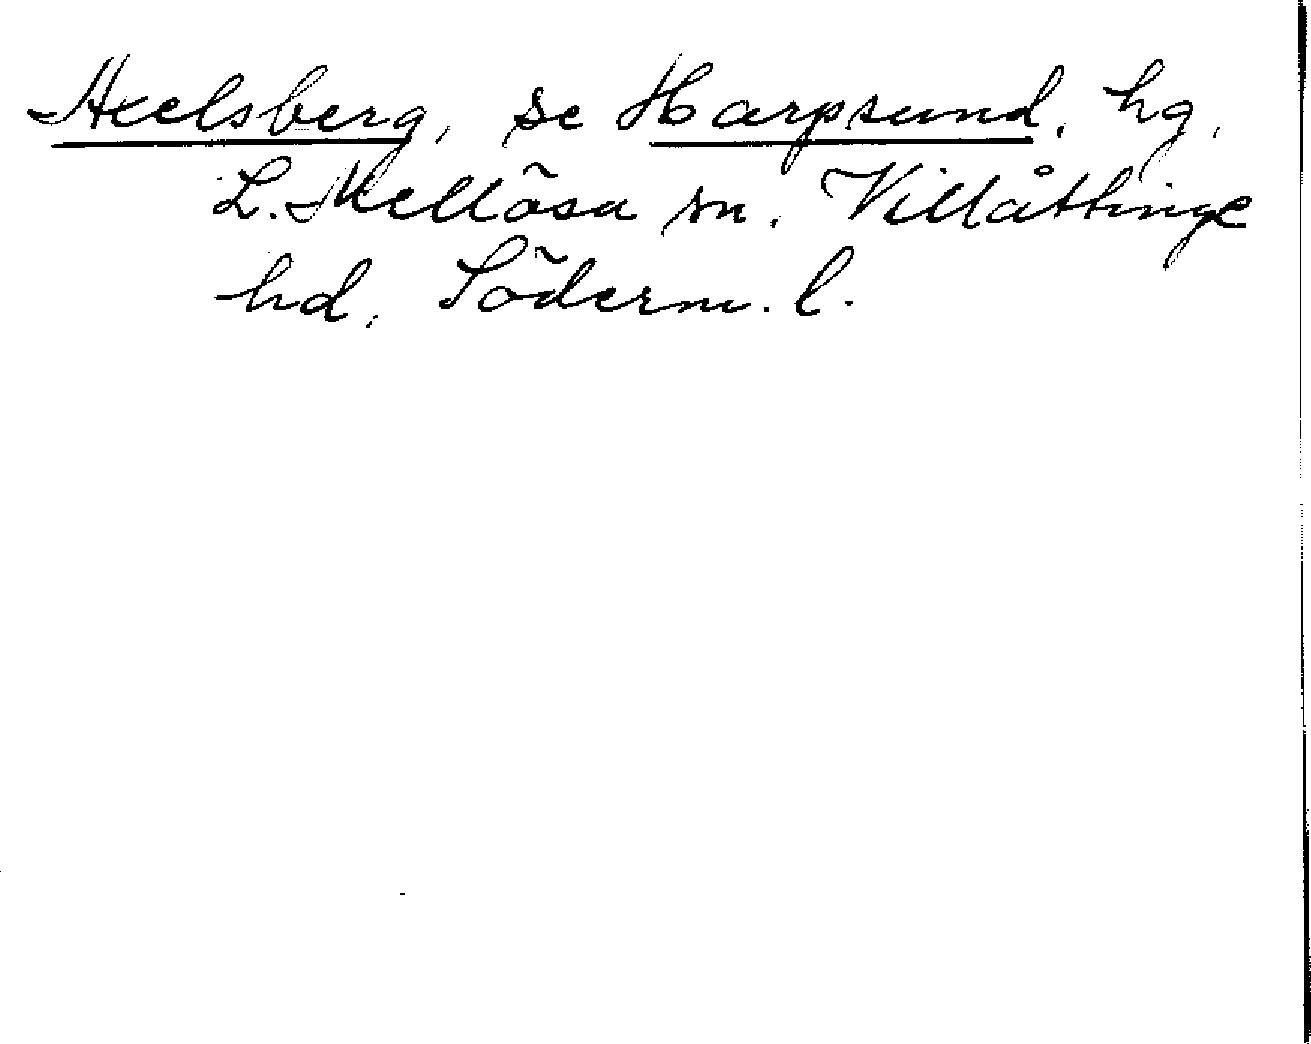 Axelsberg, se Harpsund, hg,
L. Mellösa sn. Villåttinge
hd, Söderm. l.